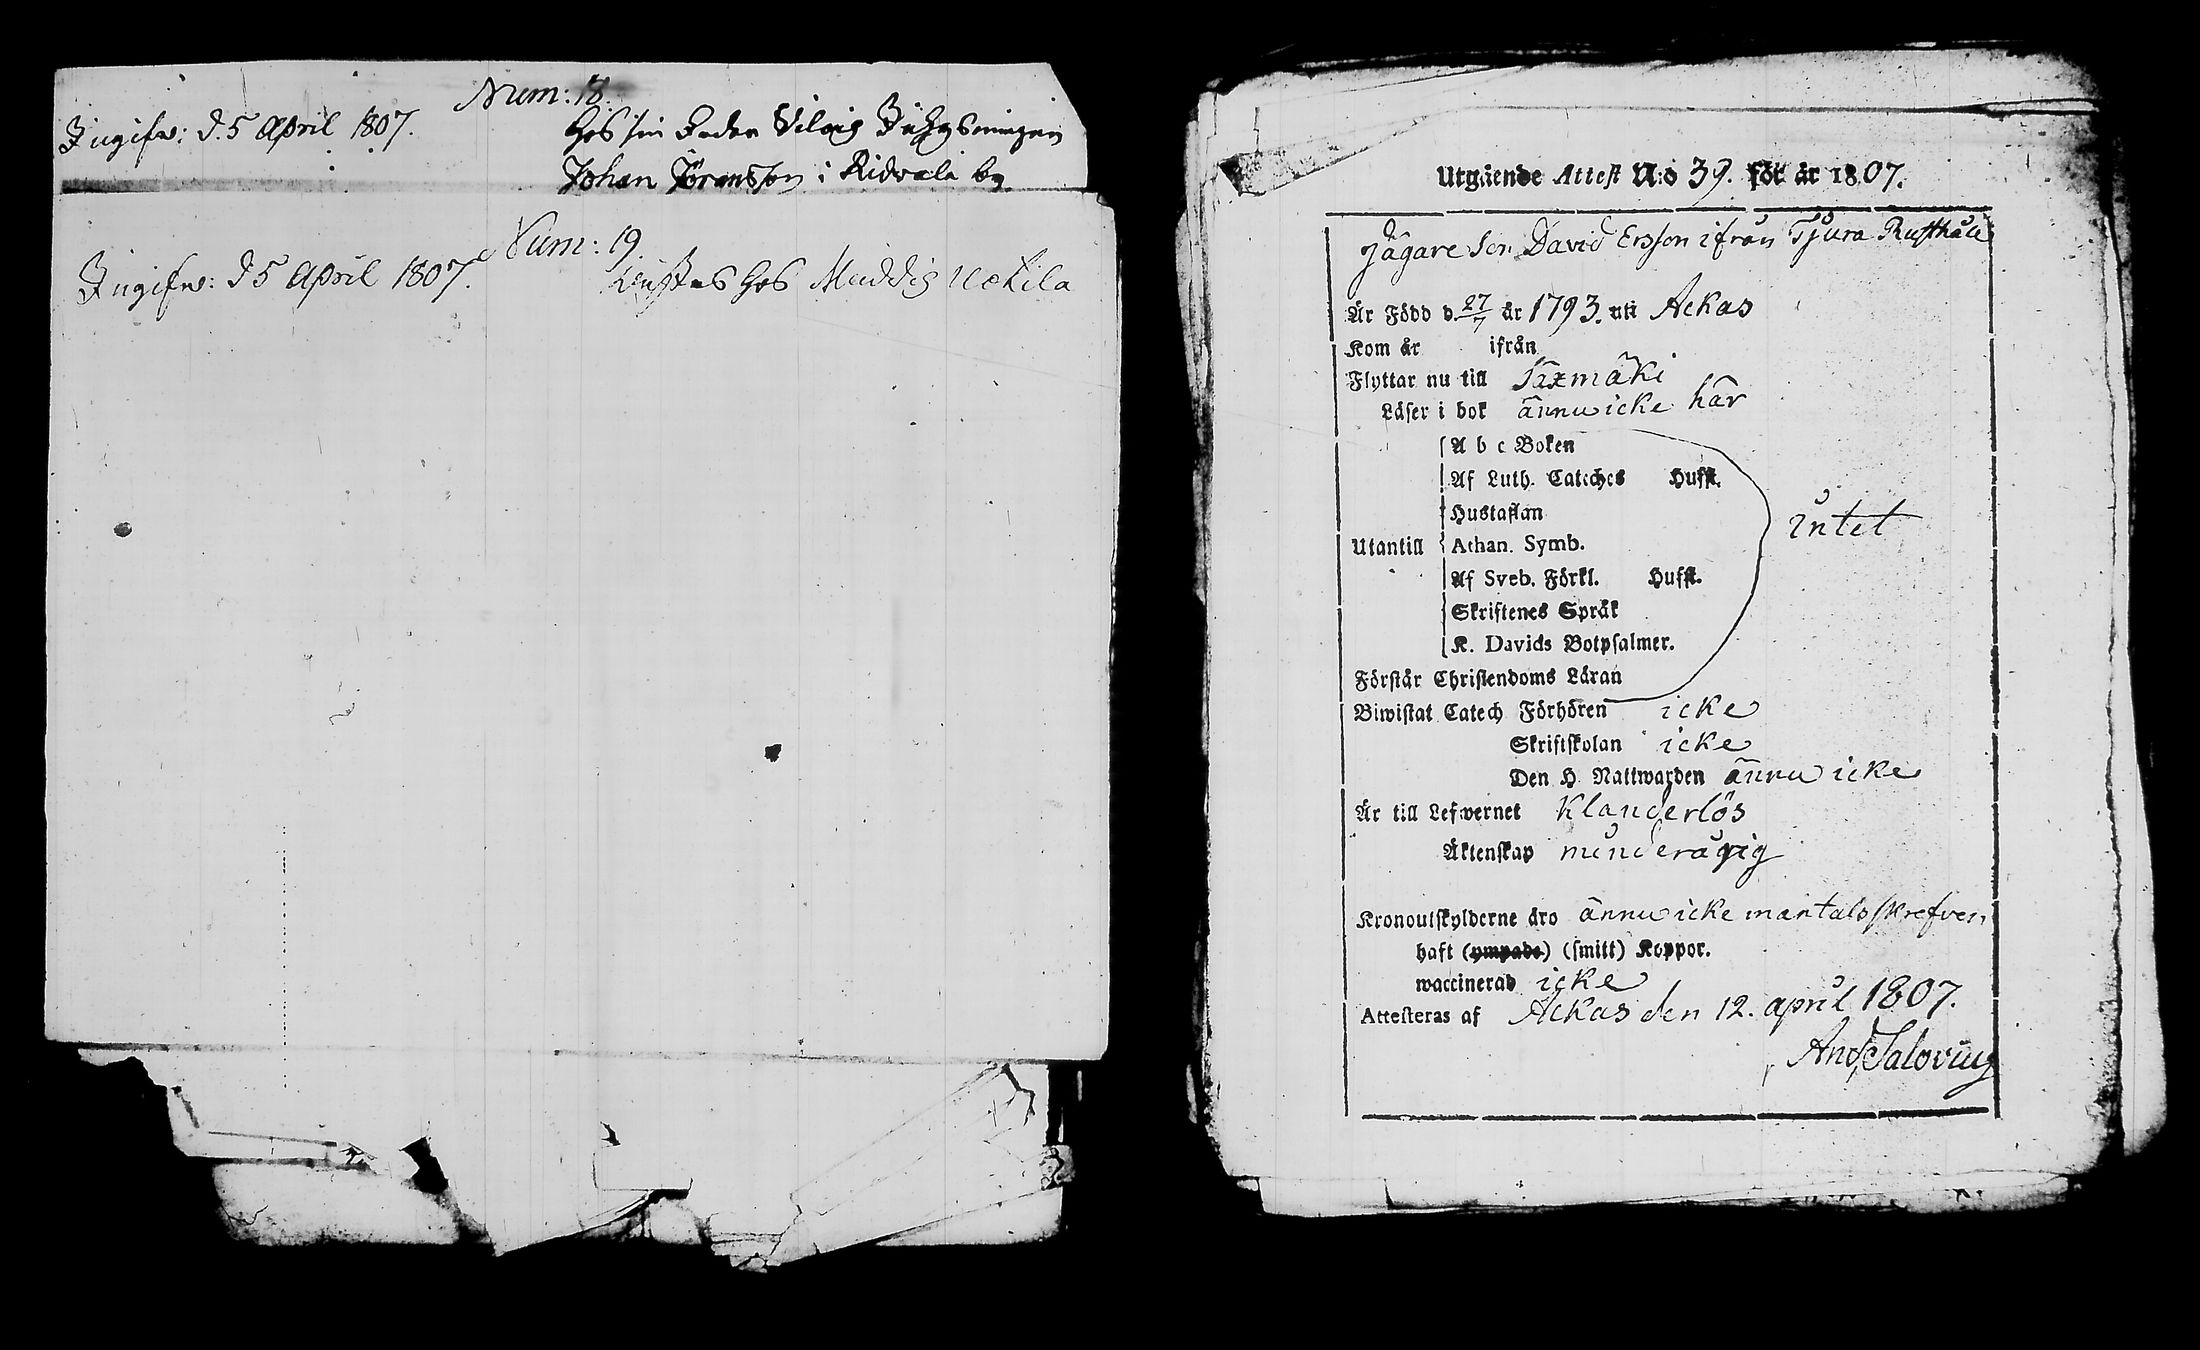 Num: 18.
Ingifw: d. 5 April 1807.
Hos sin Fader
Johan Jöransson i Ridvala by
Num: 19.
Ingifw: d 5 April 1807.
Hos Uotila
Utgående Attest N:o 39. för år 1807.
Jägare Son David Ersson ifrån Tjura Rusthåll
Är Född d. 27/7 år 1793. uti Ackas
Kom år ifrån
Flyttar nu till Säxmäki
Läser i bok ännu icke här
A b c Boken
Af Luth. Cateches Hufst.
Hustaflan
Utantill Athan. Symb. intet
Af Sveb. Förkl. Hufst.
Skriftenes Språk
K. Davids Botpsalmer.
Förstår Christendoms Läran
Biwistat Catech Förhören icke
Skriftskolan icke
Den H. Nattwarden ännu icke
Är till Lefwernet Klanderlös
Äktenskap minderågig
Kronoutskylderne äro ännu icke mantalsskrefven
haft (ympade) (smitt) Koppor.
waccinerad icke
Attesteras af Ackas den 12. april 1807.
And Salovius